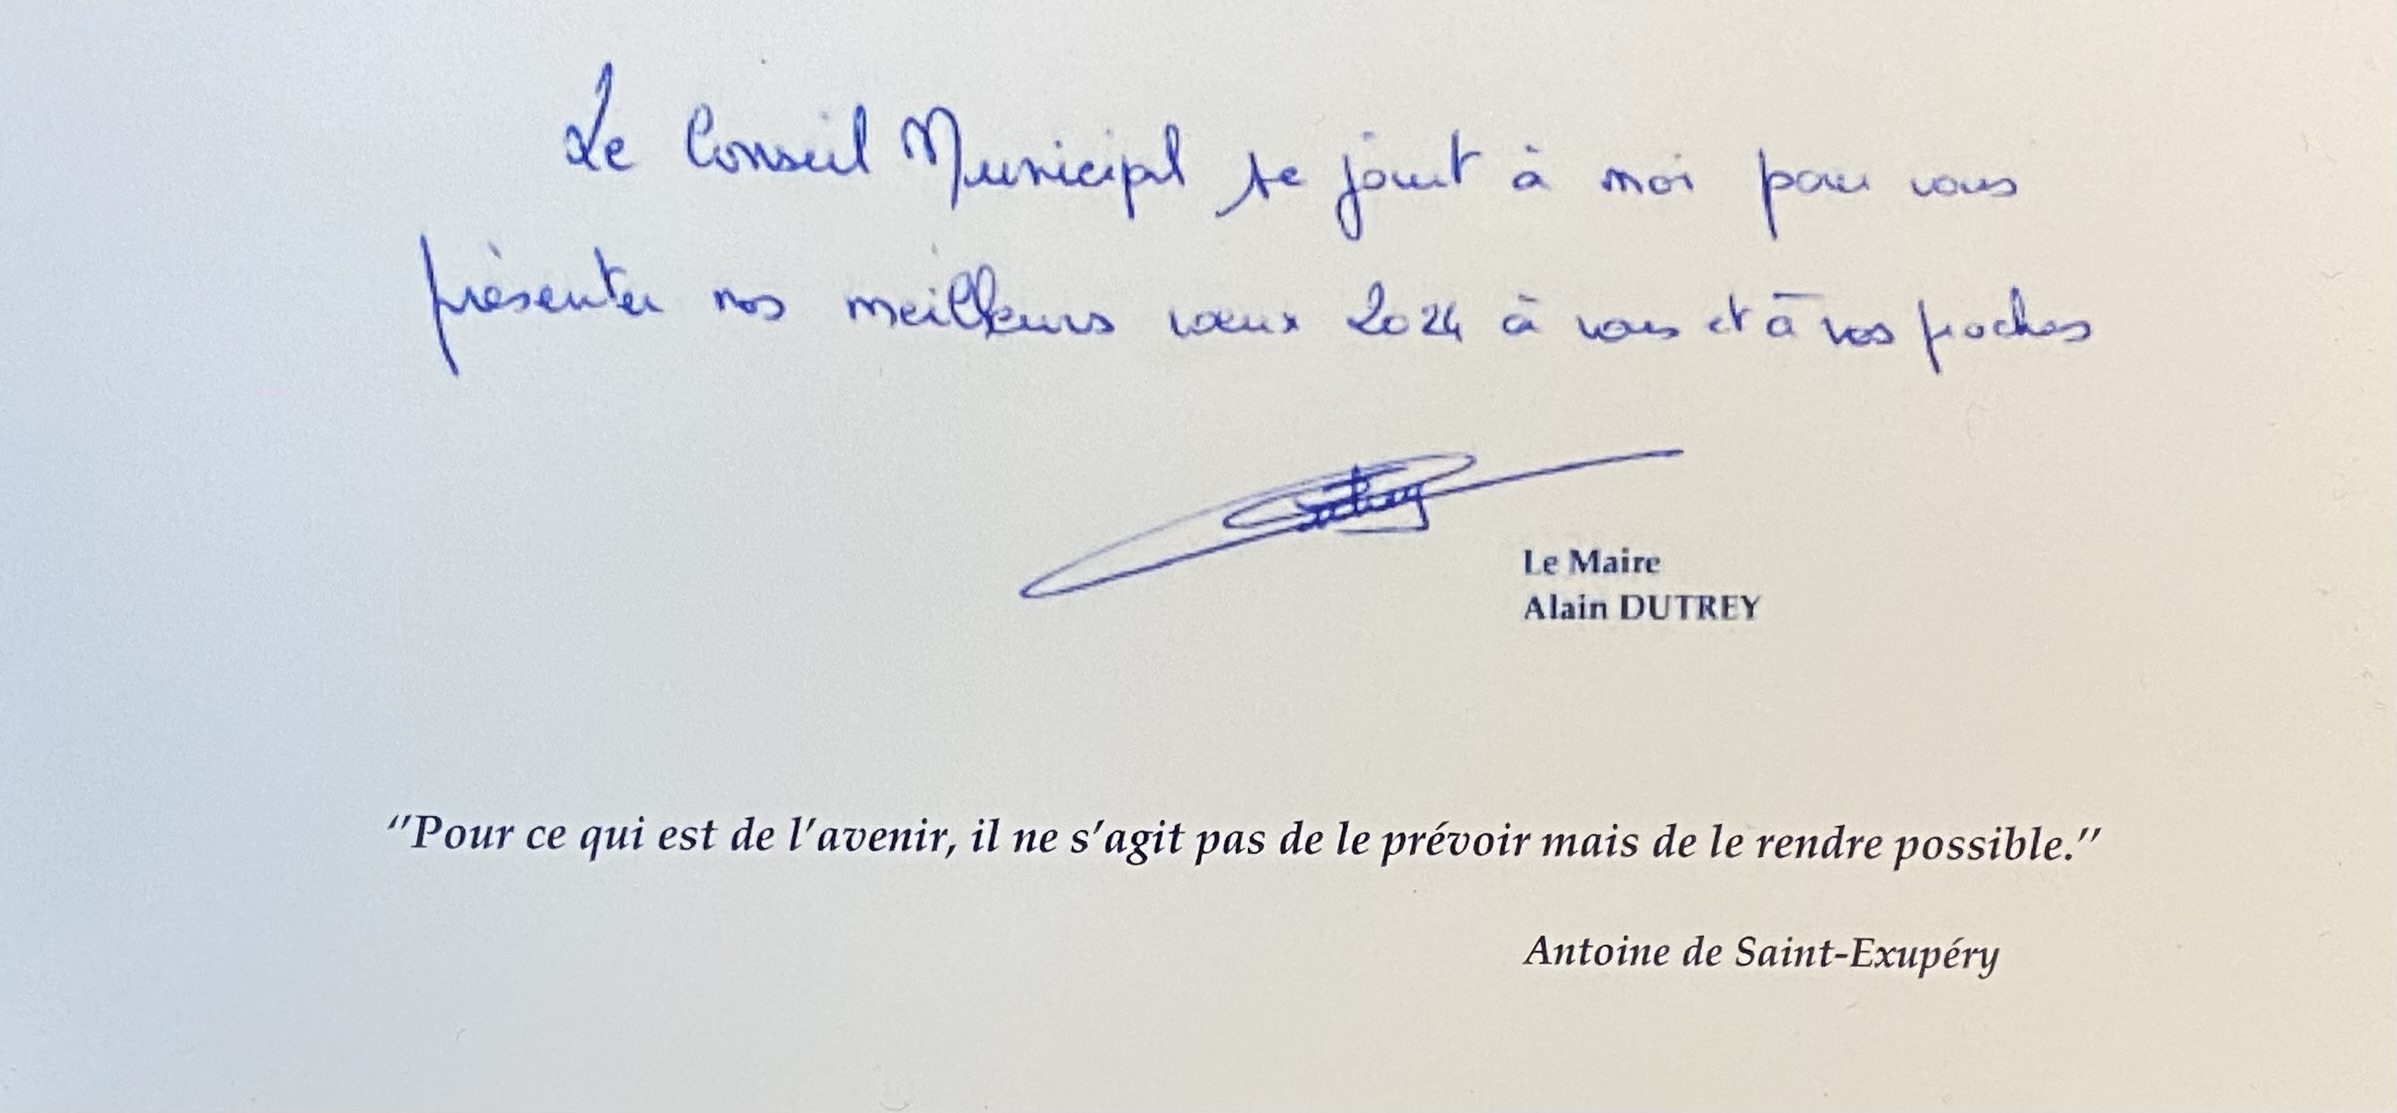 Le Conseil Municipal se joint à moi pour vous
présenter nos meilleurs vœux 2024 à vous et à vos proches
Le Maire
Alain DUTREY
"Pour ce qui est de l'avenir, il ne s'agit pas de le prévoir mais de le rendre possible."
Antoine de Saint-Exupéry